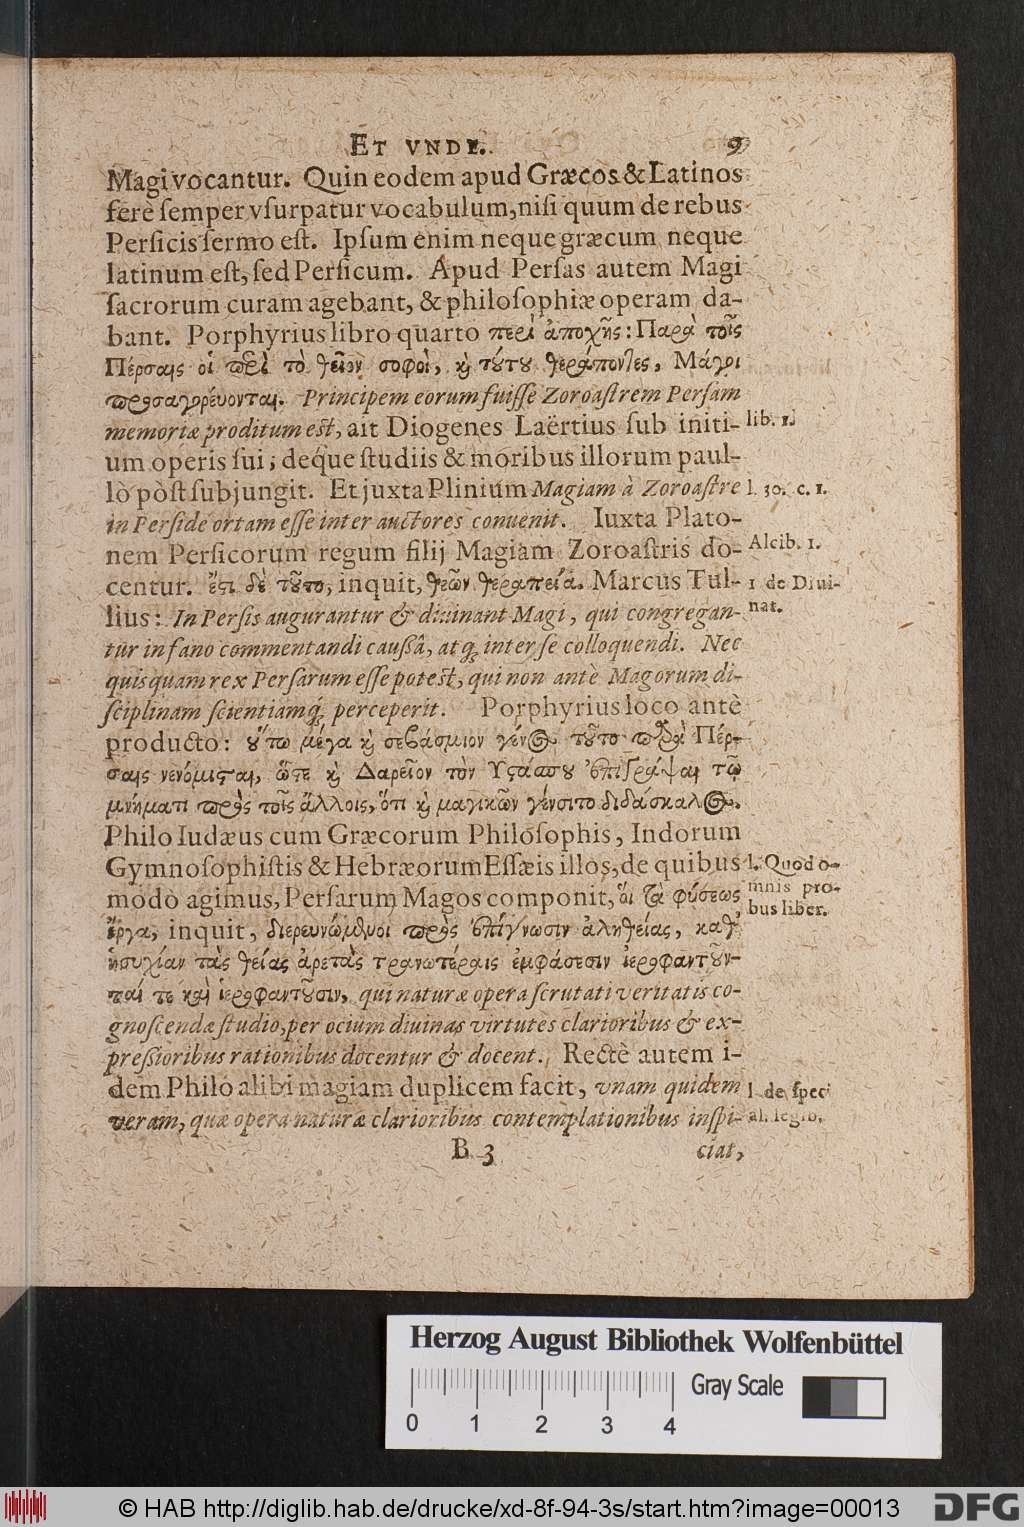 ET VNDE. 9
Magi vocantur. Quin eodem apud Græcos & Latinos
ferè ſemper vſurpatur vocabulum, niſi quum de rebus
Perſicis ſermo eſt. Ipſum enim neque græcum neque
latinum eſt, ſed Perſicum. Apud Perſas autem Magi
ſacrorum curam agebant, & philoſophiæ operam da-
bant. Porphyrius libro quarto περὶ ἀποχῆς: Παρὰ τοῖς
Πέρσαις οἱ περὶ τὸ θεῖον σοφοὶ, καὶ τούτου θεράποντες, Μάγοι
προσαγορέυονται. Principem eorum fuiſſe Zoroaſtrem Perſam
memoriæ proditum eſt, ait Diogenes Laërtius ſub initi- lib. 1.
um operis ſui; deque ſtudiis & moribus illorum paul-
lò pòſt ſubjungit. Et juxta Plinium Magiam à Zoroaſtre l. 30. c. 1.
in Perſide ortam eſſe inter auctores conuenit. Iuxta Plato-
nem Perſicorum regum filij Magiam Zoroaſtris do- Alcib. 1.
centur. ἔστι δὲ τοῦτο, inquit, θεῶν θεραπεία. Marcus Tul- 1 de Diui-
lius: In Perſis augurantur & diuinant Magi, qui congregan- nat.
tur in fano commentandi cauſſâ, atq; inter ſe colloquendi. Nec
quisquam rex Perſarum eſſe poteſt, qui non antè Magorum di-
ſciplinam ſcientiamq; perceperit. Porphyrius loco antè
producto: οὕτω μέγα καὶ σεβάσμιον γένος τοῦτο παρὰ Πέρ-
σαις νενόμισται, ὥστε καὶ Δαρεῖον τὸν Υστάσπου ἐπιγράψαι τῷ
μνήματι πρὸς τοῖς ἄλλοις, ὅτι καὶ μαγικῶν γένοιτο διδάσκαλος.
Philo Iudæus cum Græcorum Philoſophis, Indorum
Gymnoſophiſtis & Hebræorum Eſſæis illos, de quibus l. Quod o-
modò agimus, Perſarum Magos componit, ὅι τὰ φύσεως mnis pro-
ἔργα, inquit, διερευνώμενοι πρὸς ἐπίγνωσιν ἀληθείας, καθ' bus liber.
ἡσυχίαν τὰς θείας ἀρετὰς τρανωτέραις ἐμφάσεσιν ἱεροφαντοῦν-
ταί τε καὶ ἱεροφαντοῦσιν, qui naturæ opera ſcrutati veritatis co-
gnoſcendæ ſtudio, per ocium diuinas virtutes clarioribus & ex-
preſſioribus rationibus docentur & docent. Rectè autem i-
dem Philo alibi magiam duplicem facit, vnam quidem l. de ſpeci
veram, quæ opera naturæ clarioribus contemplationibus inſpi- al. legib.
B 3 ciat,
Herzog August Bibliothek Wolfenbüttel
Gray Scale
0 1 2 3 4
© HAB http://diglib.hab.de/drucke/xd-8f-94-3s/start.htm?image=00013 DFG